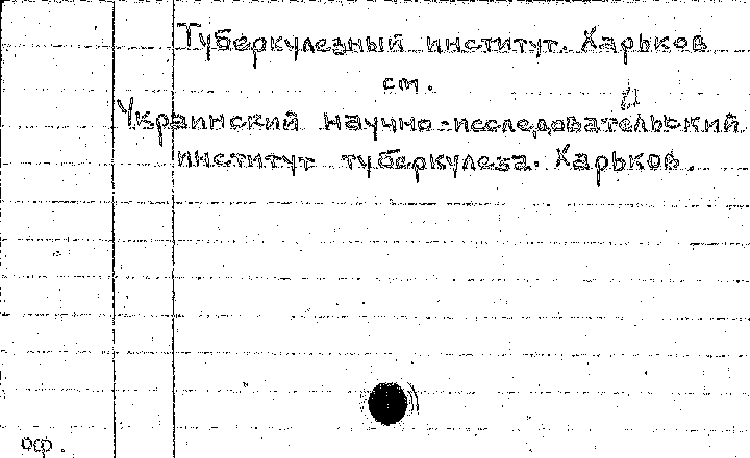 Туберкулезный институт. Харьков
см.
Украинский научно-исследовательский
институт туберкулеза. Харьков.
оф.